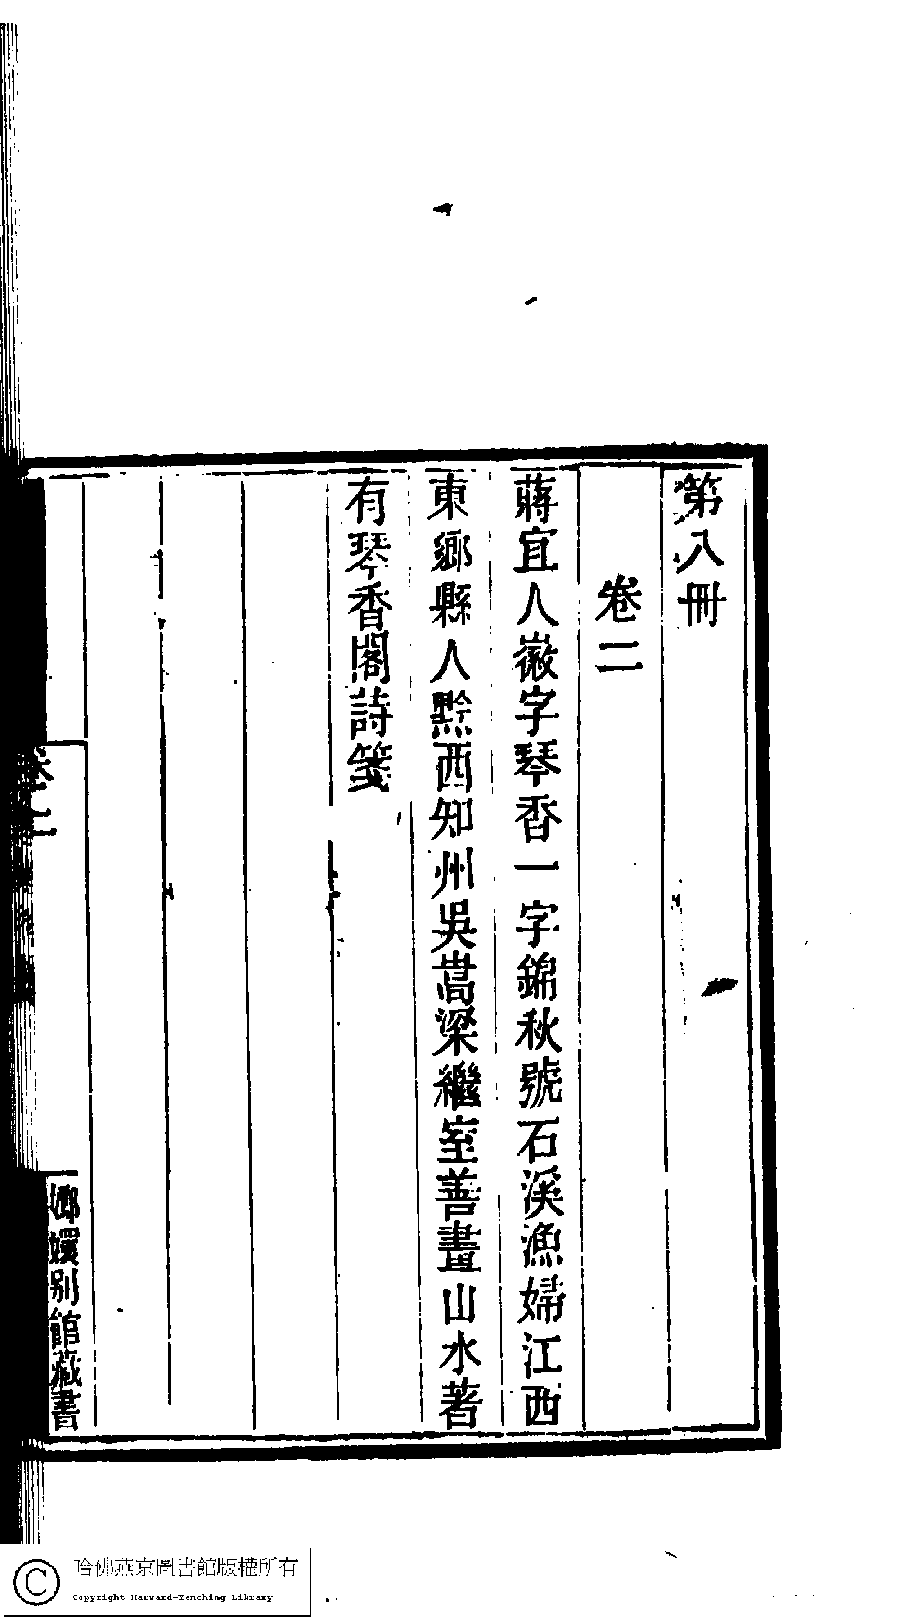 第八冊
卷二
蔣宜人徽字琴香一字錦秋號石溪漁婦江西
東鄉縣人黔西知州吳嵩梁繼室善畫山水著
有琴香閣詩箋
卷二
嫏嬛別館藏書
哈佛燕京圖書館版權所有
Copyright Harvard-Yenching Library